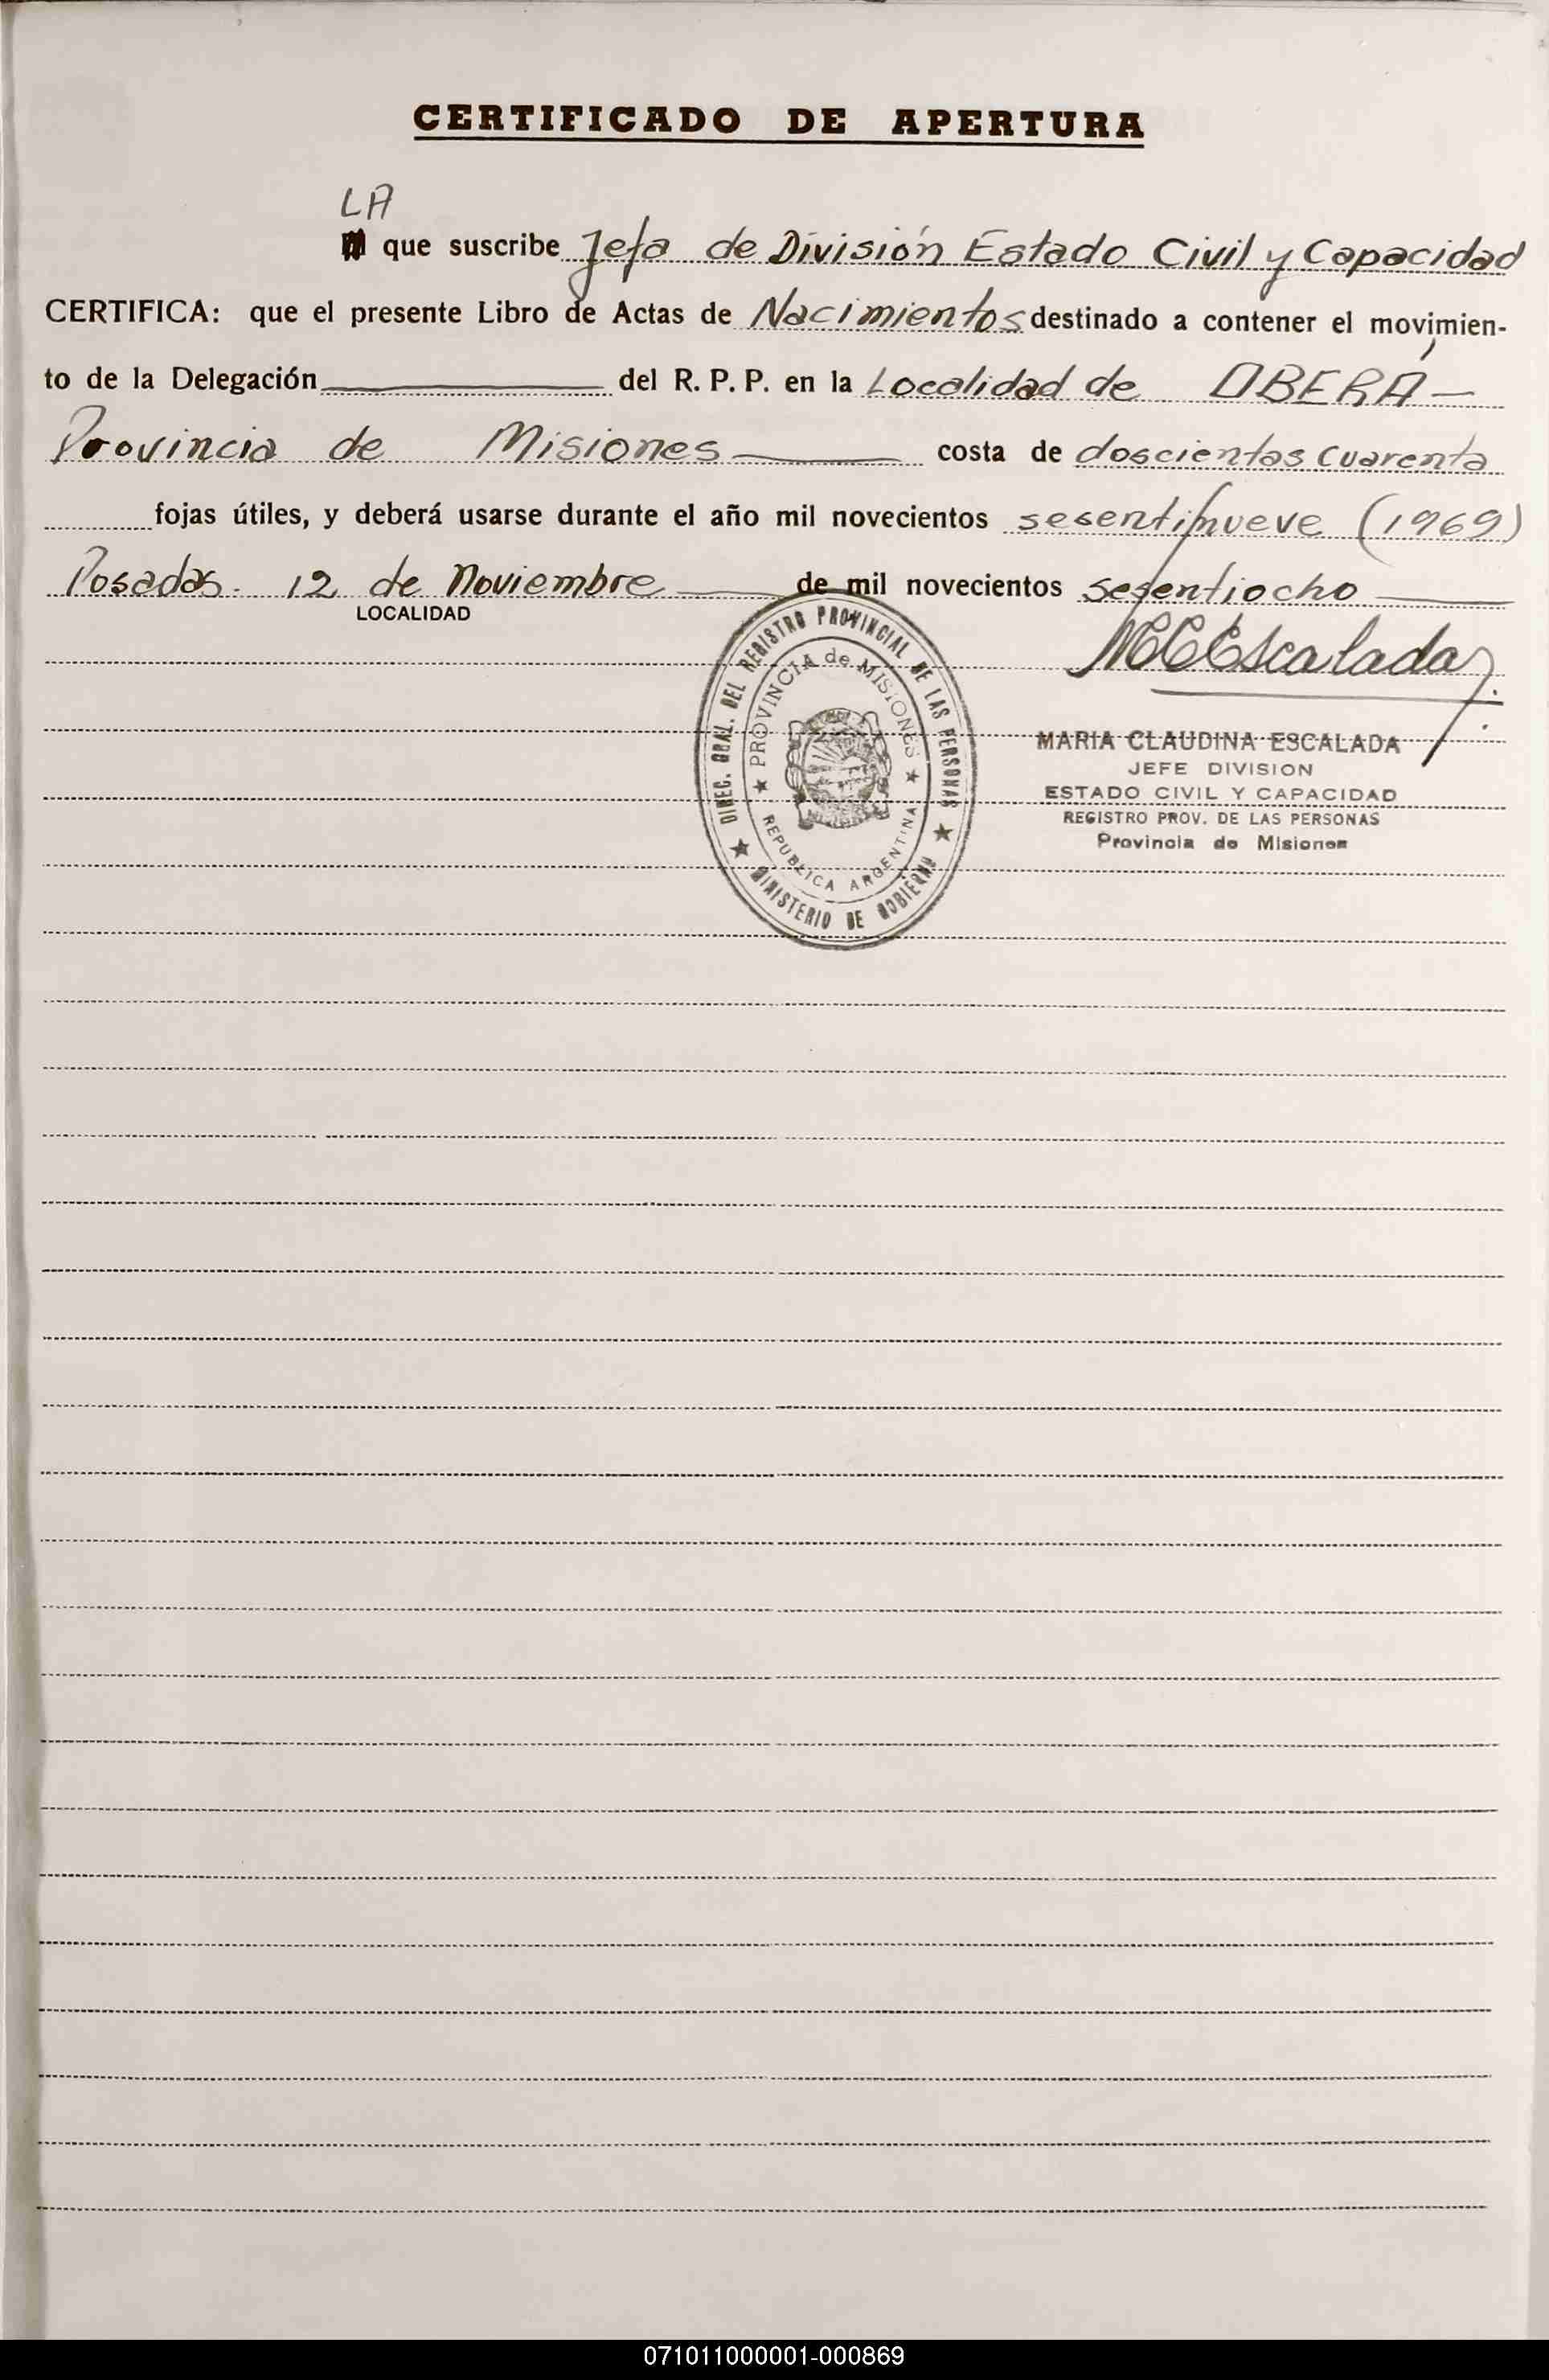 CERTIFICADO DE APERTURA
LA
que suscribe Jefa de División Estado Civil y Capacidad
CERTIFICA: que el presente Libro de Actas de Nacimientos destinado a contener el movimien-
to de la Delegación del R. P. P. en la Localidad de OBERÁ —
Provincia de Misiones costa de doscientas cuarenta
fojas útiles, y deberá usarse durante el año mil novecientos sesentinueve (1969)
Posadas. 12 de Noviembre de mil novecientos sesentiocho
LOCALIDAD
MCEscalada
DIREC. GRAL. DEL REGISTRO PROVINCIAL DE LAS PERSONAS
PROVINCIA de MISIONES
REPUBLICA ARGENTINA
MINISTERIO DE GOBIERNO
MARIA CLAUDINA ESCALADA
JEFE DIVISION
ESTADO CIVIL Y CAPACIDAD
REGISTRO PROV. DE LAS PERSONAS
Provincia de Misiones
071011000001-000869